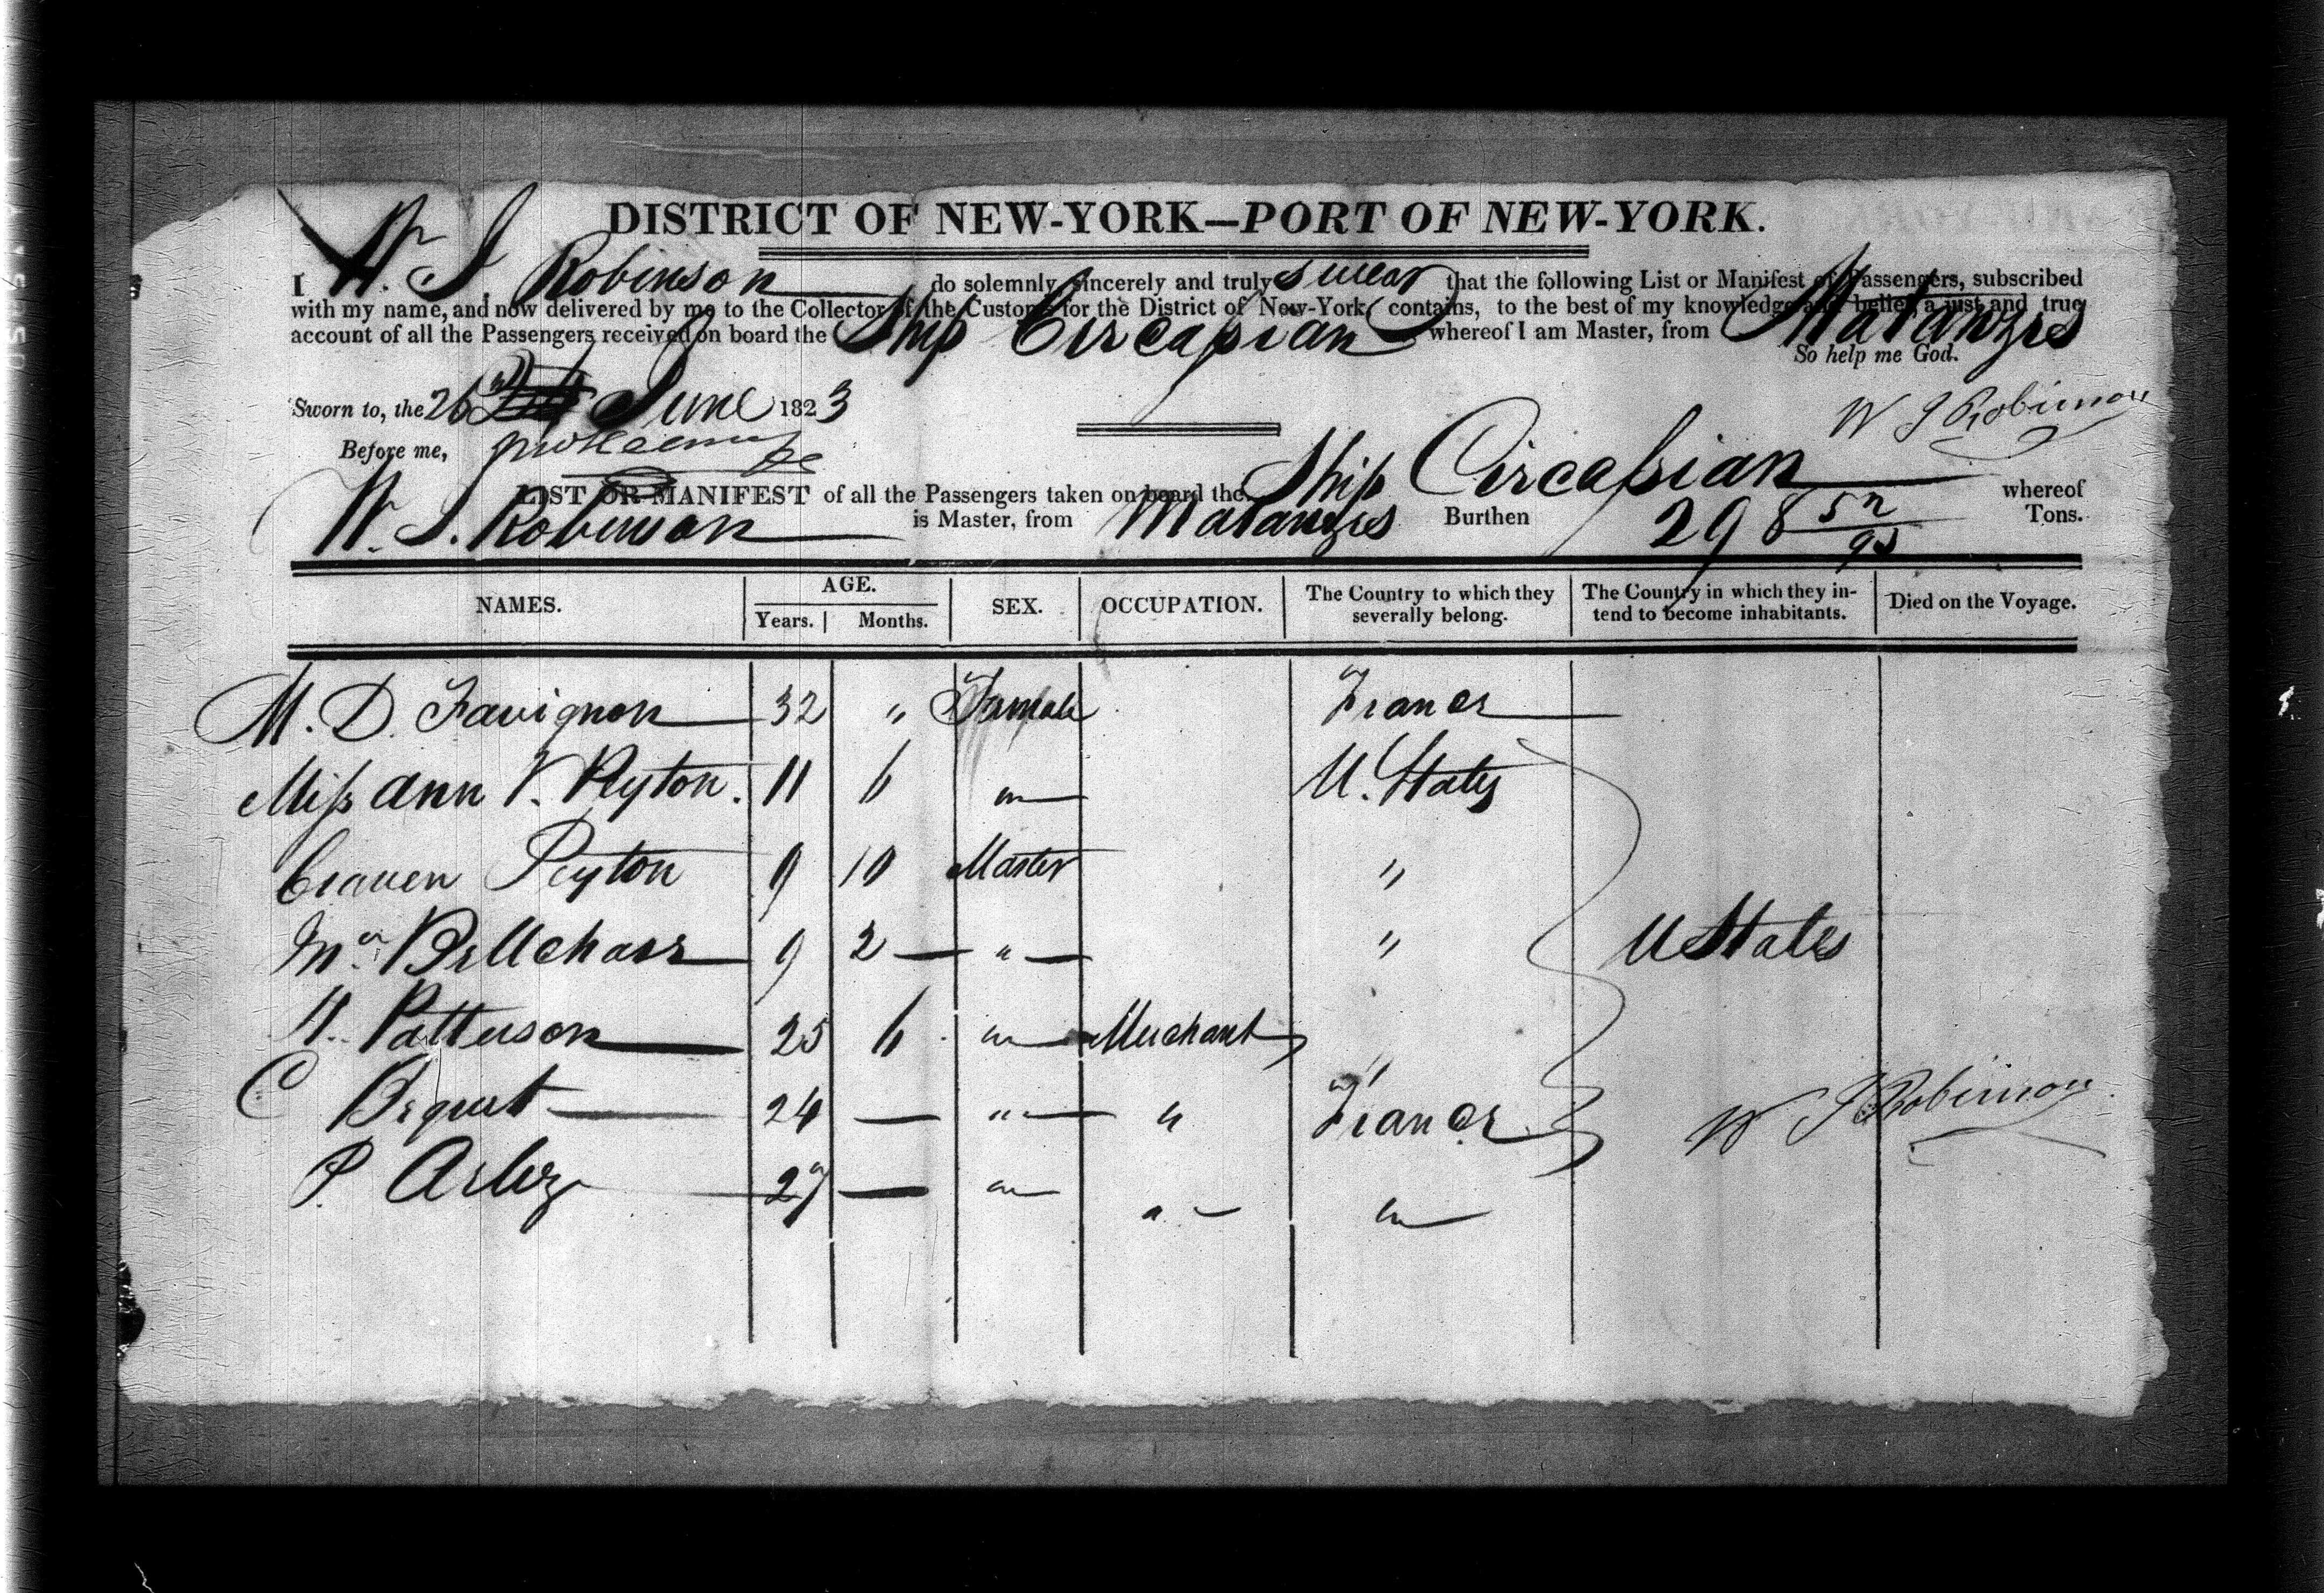 DISTRICT OF NEW-YORK—PORT OF NEW-YORK.
I W. S. Robinson do solemnly, sincerely and truly swear that the following List or Manifest of Passengers, subscribed
with my name, and now delivered by me to the Collector of the Customs for the District of New-York, contains, to the best of my knowledge and belief, a just and true
account of all the Passengers received on board the Ship Circassian whereof I am Master, from Matanzes
So help me God.
Sworn to, the 26 June 1823
W S Robinson
Before me,
LIST OR MANIFEST of all the Passengers taken on board the Ship Circassian whereof
W. S. Robinson is Master, from Matanzes Burthen 298 52/95 Tons.
NAMES. AGE. Years. Months. SEX. OCCUPATION. The Country to which they severally belong. The Country in which they intend to become inhabitants. Died on the Voyage.
M. D. Favignon 32 " Female France
Miss Ann V. Peyton. 11 6 " U. States
Craven Peyton 9 10 Master "
Mr. Bellchass 9 2 — " — " U States
H. Patterson 25 6 " Merchant "
C Bequet 24 — " " France
W S Robinson
P. 27 — " " "